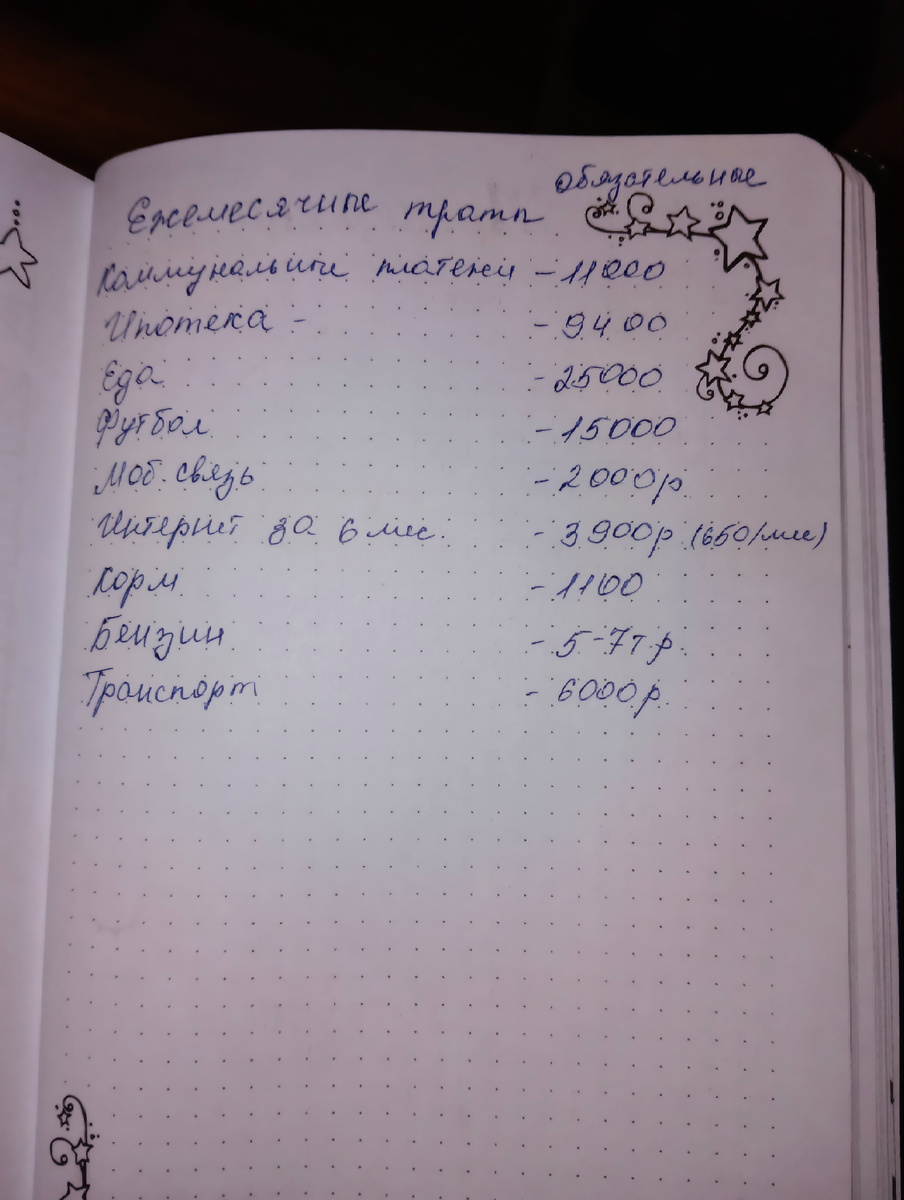 обязательные
Ежемесячные траты
Коммунальные платежи - 11000
Ипотека - - 9400
Еда - 25000
Футбол - 15000
Моб. связь - 2000р
Интернет за 6 мес. - 3900р (650/мес)
Корм - 1100
Бензин - 5-7т.р.
Транспорт - 6000р.